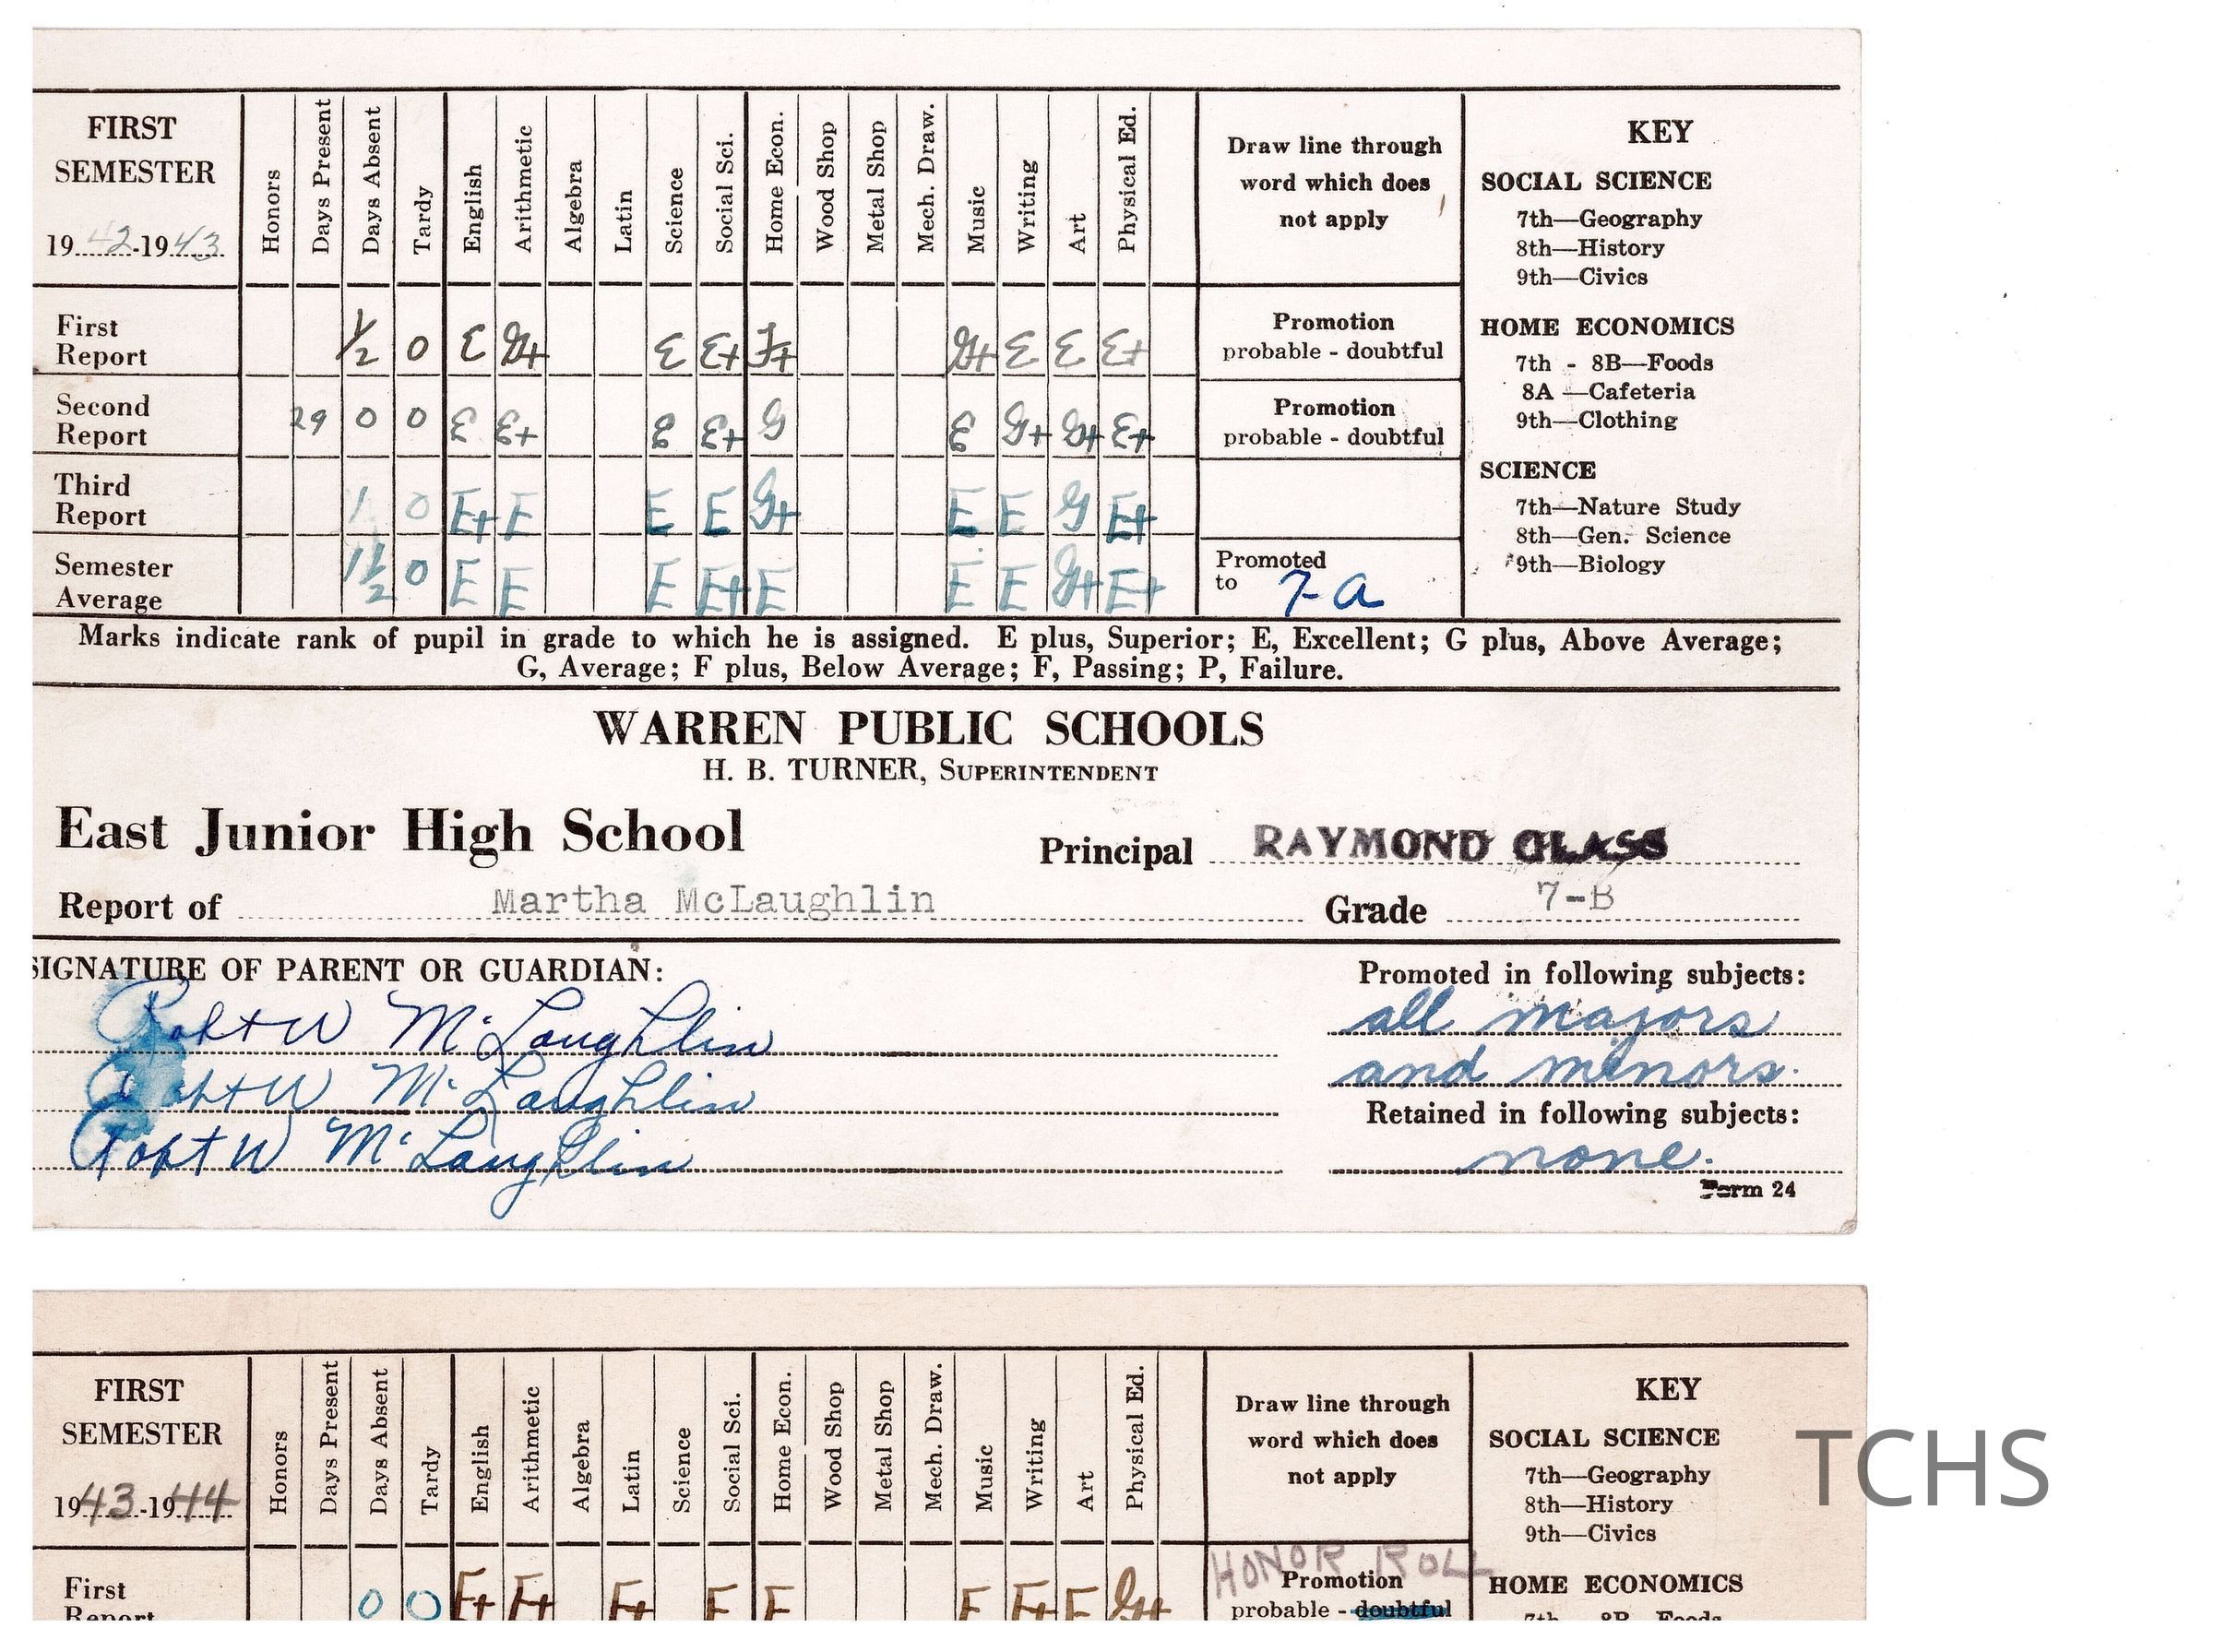 FIRST SEMESTER 1942-1943 Honors Days Present Days Absent Tardy English Arithmetic Algebra Latin Science Social Sci. Home Econ. Wood Shop Metal Shop Mech. Draw. Music Writing Art Physical Ed.
Draw line through word which does not apply
First Report 1/2 0 E G+ E E+ F+ G+ E E E+ Promotion probable - doubtful
Second Report 29 0 0 E E+ E E+ G E G+ G+ E+ Promotion probable - doubtful
Third Report 1 0 E+ E E E G+ E E G E+
Semester Average 1 1/2 0 E E E E+ E E E G+ E+ Promoted to 7-a
KEY
SOCIAL SCIENCE
7th—Geography
8th—History
9th—Civics
HOME ECONOMICS
7th - 8B—Foods
8A —Cafeteria
9th—Clothing
SCIENCE
7th—Nature Study
8th—Gen. Science
9th—Biology
Marks indicate rank of pupil in grade to which he is assigned. E plus, Superior; E, Excellent; G plus, Above Average;
G, Average; F plus, Below Average; F, Passing; P, Failure.
WARREN PUBLIC SCHOOLS
H. B. TURNER, SUPERINTENDENT
East Junior High School Principal RAYMOND GLASS
Report of Martha McLaughlin Grade 7-B
SIGNATURE OF PARENT OR GUARDIAN:
Robt W McLaughlin
Robt W McLaughlin
Robt W McLaughlin
Promoted in following subjects:
all majors
and minors.
Retained in following subjects:
none.
Form 24
FIRST SEMESTER 1943-1944 Honors Days Present Days Absent Tardy English Arithmetic Algebra Latin Science Social Sci. Home Econ. Wood Shop Metal Shop Mech. Draw. Music Writing Art Physical Ed.
Draw line through word which does not apply
HONOR ROLL
First Report 0 0 E+ E+ E+ E E E E+ E G+ Promotion probable - doubtful
KEY
SOCIAL SCIENCE
7th—Geography
8th—History
9th—Civics
HOME ECONOMICS
7th 8B Foods
TCHS